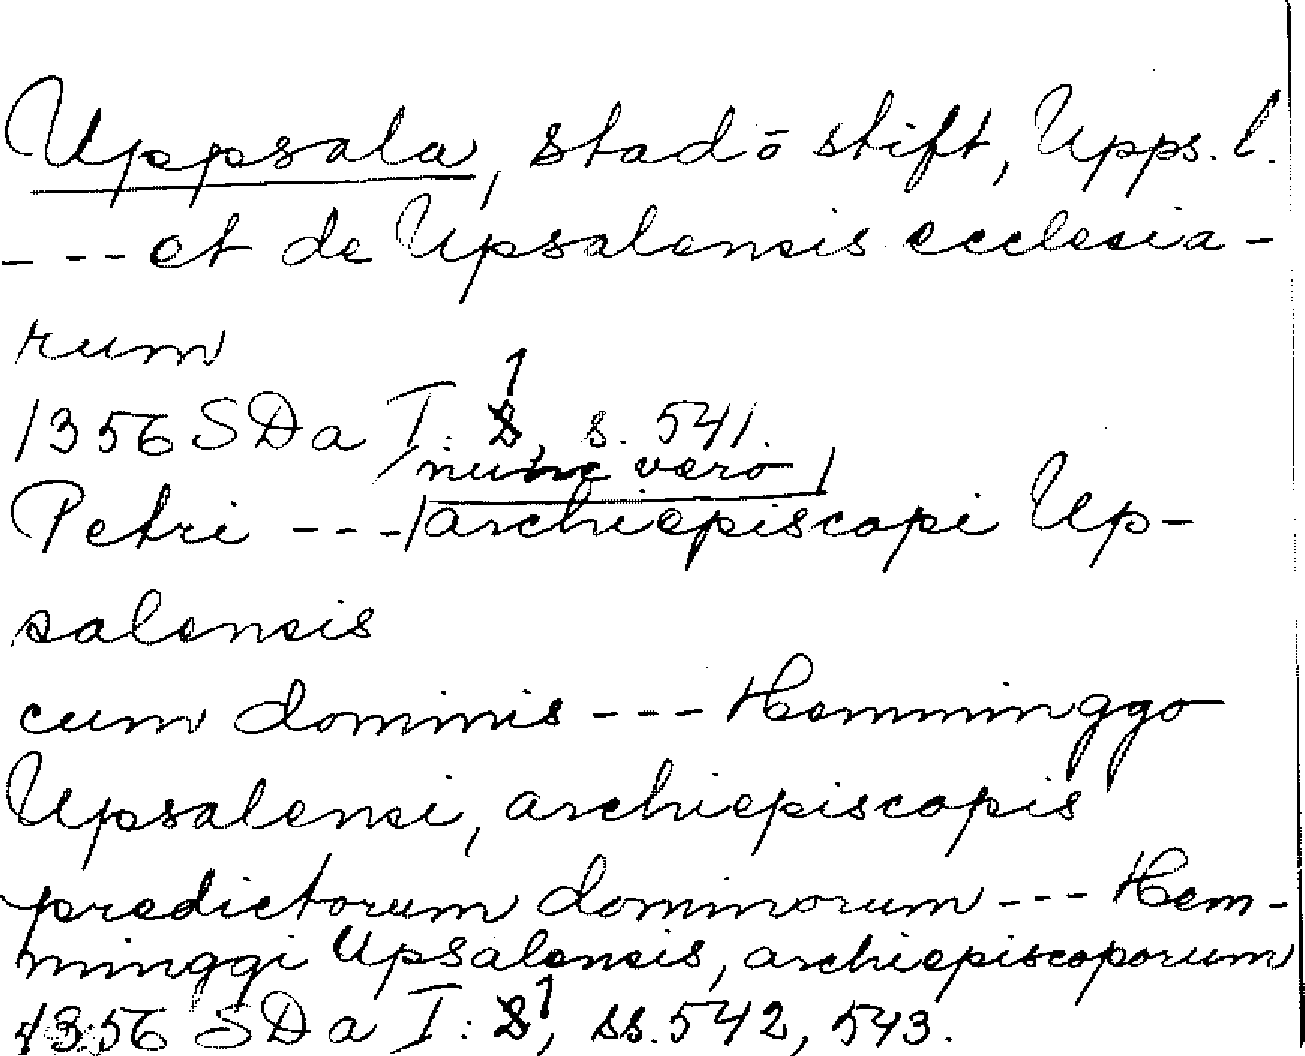 Uppsala, stad o stift, Upps. l.
--- et de Upsalensis ecclesia-
rum
1356 SDa I: 1, s. 541.
/nunc vero/
Petri ---/archiepiscopi Up-
salensis
cum dominis --- Hemminggo
Upsalensi, archiepiscopis
predictorum dominorum --- Hem-
minggi Upsalensis, archiepiscoporum
1356 SDa I: 1, ss. 542, 543.